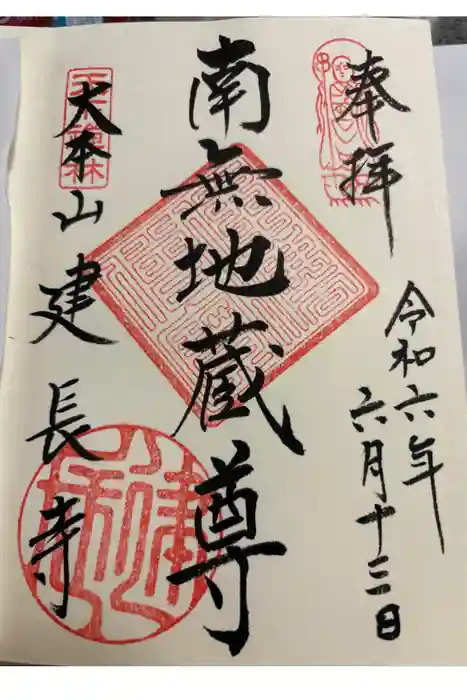 奉拝
令和六年
六月十三日
南無地蔵尊
大本山建長寺